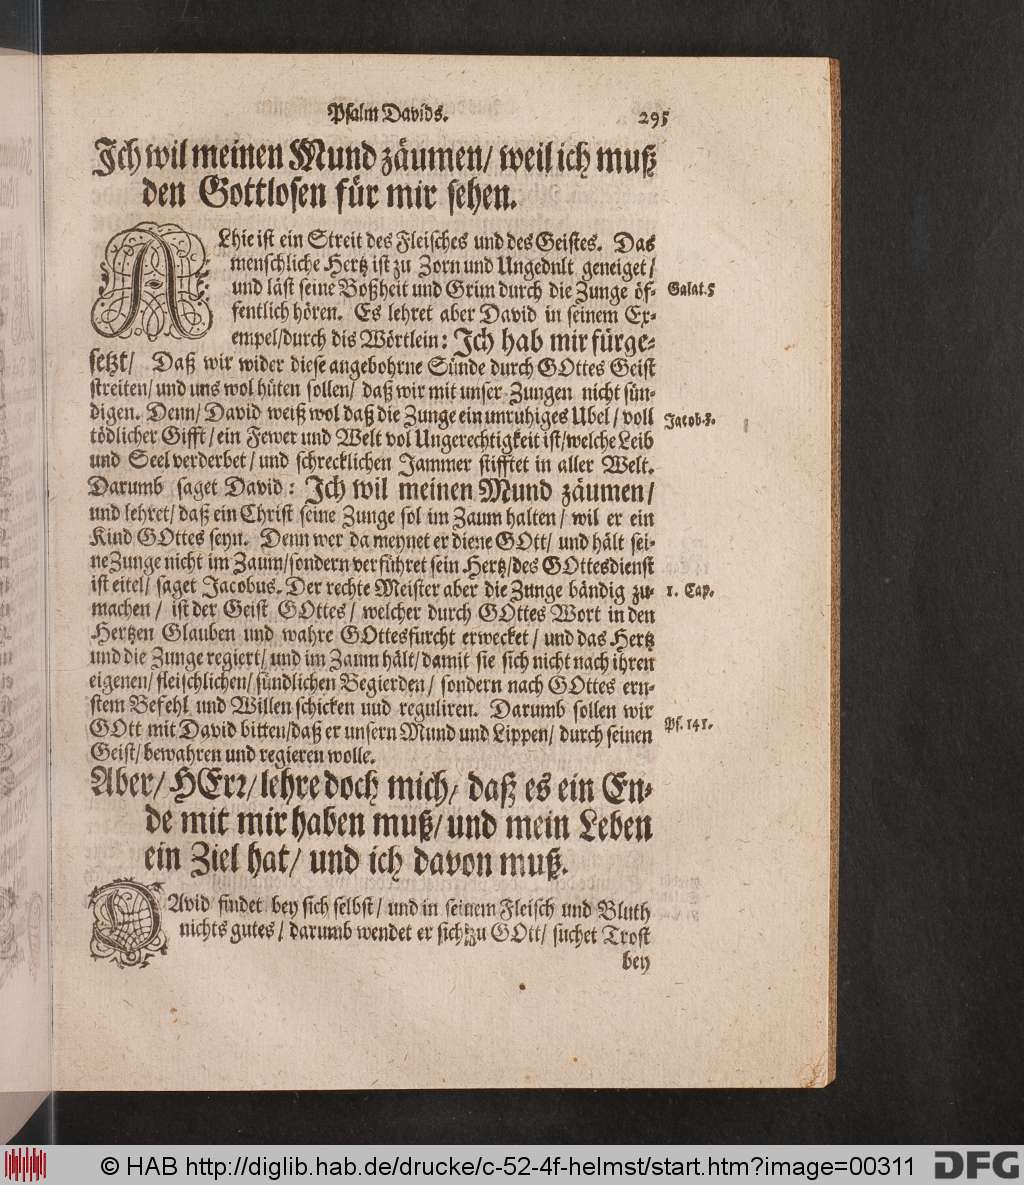 Psalm Davids. 295
Ich wil meinen Mund zäumen/ weil ich muß
den Gottlosen für mir sehen.
ALhie ist ein Streit des Fleisches und des Geistes. Das
menschliche Hertz ist zu Zorn und Ungedult geneiget/
und läst seine Boßheit und Grim durch die Zunge öf- Galat. 5
fentlich hören. Es lehret aber David in seinem Ex-
empel/durch dis Wörtlein: Ich hab mir fürge-
setzt/ Daß wir wider diese angebohrne Sünde durch GOttes Geist
streiten/ und uns wol hüten sollen/ daß wir mit unser Zungen nicht sün-
digen. Denn/ David weiß wol daß die Zunge ein unruhiges Ubel/ voll Jacob. 3.
tödlicher Gifft/ ein Fewer und Welt vol Ungerechtigkeit ist/welche Leib
und Seel verderbet/ und schrecklichen Jammer stifftet in aller Welt.
Darumb saget David: Ich wil meinen Mund zäumen/
und lehret/ daß ein Christ seine Zunge sol im Zaum halten/ wil er ein
Kind GOttes seyn. Denn wer da meynet er diene GOtt/ und hält sei-
ne Zunge nicht im Zaum/sondern verführet sein Hertz/des GOttesdienst
ist eitel/ saget Jacobus. Der rechte Meister aber die Zunge bändig zu- 1. Cap.
machen/ ist der Geist GOttes/ welcher durch GOttes Wort in den
Hertzen Glauben und wahre GOttesfurcht erwecket/ und das Hertz
und die Zunge regiert/ und im Zaum hält/damit sie sich nicht nach ihren
eigenen/ fleischlichen/ sündlichen Begierden/ sondern nach GOttes ern-
stem Befehl und Willen schicken uud reguliren. Darumb sollen wir
GOtt mit David bitten/daß er unsern Mund und Lippen/ durch seinen Ps. 141.
Geist/ bewahren und regieren wolle.
Aber/ HErr/ lehre doch mich/ daß es ein En-
de mit mir haben muß/ und mein Leben
ein Ziel hat/ und ich davon muß.
DAvid findet bey sich selbst/ und in seinem Fleisch und Bluth
nichts gutes/ darumb wendet er sich zu GOtt/ suchet Trost
bey
© HAB http://diglib.hab.de/drucke/c-52-4f-helmst/start.htm?image=00311 DFG